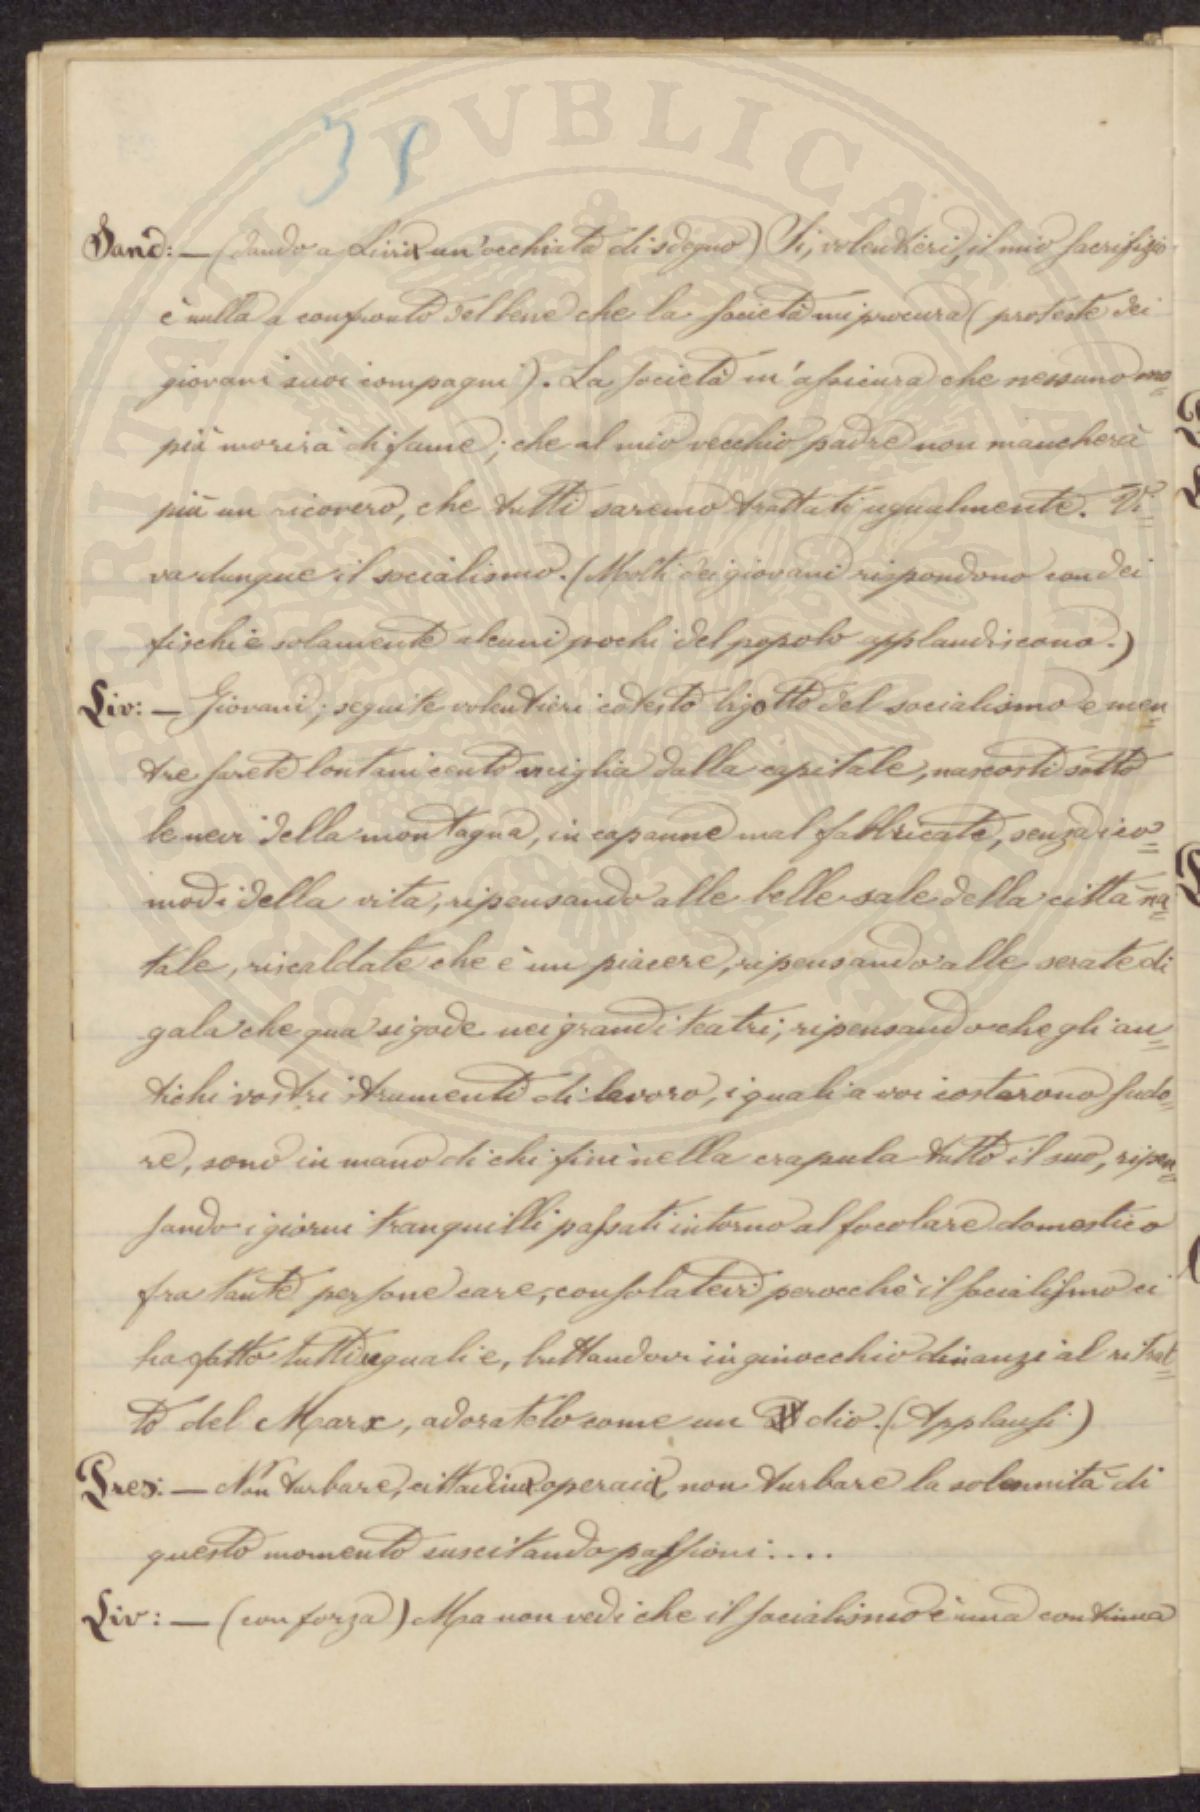 35
Sand: — (dando a Livio un'occhiata di sdegno) Si, volentieri, il mio sacrifizio
è nulla a confronto del bene che la società mi procura (proteste dei
giovani suoi compagni). La società m'assicura che nessuno mo=
più morirà di fame; che al mio vecchio padre non mancherà
più un ricovero, che tutti saremo trattati ugualmente. Vi=
va dunque il socialismo. (Molti dei giovani rispondono con dei
fischi e solamente alcuni pochi del popolo applaudiscono.)
Liv: — Giovani, seguite volentieri cotesto bigotto del socialismo e men=
tre sarete lontani cento miglia dalla capitale, nascosti sotto
le nevi della montagna, in capanne mal fabbricate, senza i co=
modi della vita, ripensando alle belle sale della città na=
tale, riscaldate che è un piacere, ripensando alle serate di
gala che qua si gode nei grandi teatri, ripensando che gli an=
tichi vostri istrumenti di lavoro, i quali a voi costarono sudo=
re, sono in mano di chi finì nella crapula tutto il suo, ripen=
sando i giorni tranquilli passati intorno al focolare domestico
fra tante persone care, consolatevi perocchè il socialismo ci
ha fatto tutti uguali e, buttandovi in ginocchio dinanzi al ritrat=
to del Marx, adoratelo come un dio. (Applausi)
Pres: — Non turbare, cittadino operaio, non turbare la solennità di
questo momento suscitando passioni....
Liv: — (con forza) Ma non vedi che il socialismo è una continua
PVBLICAE